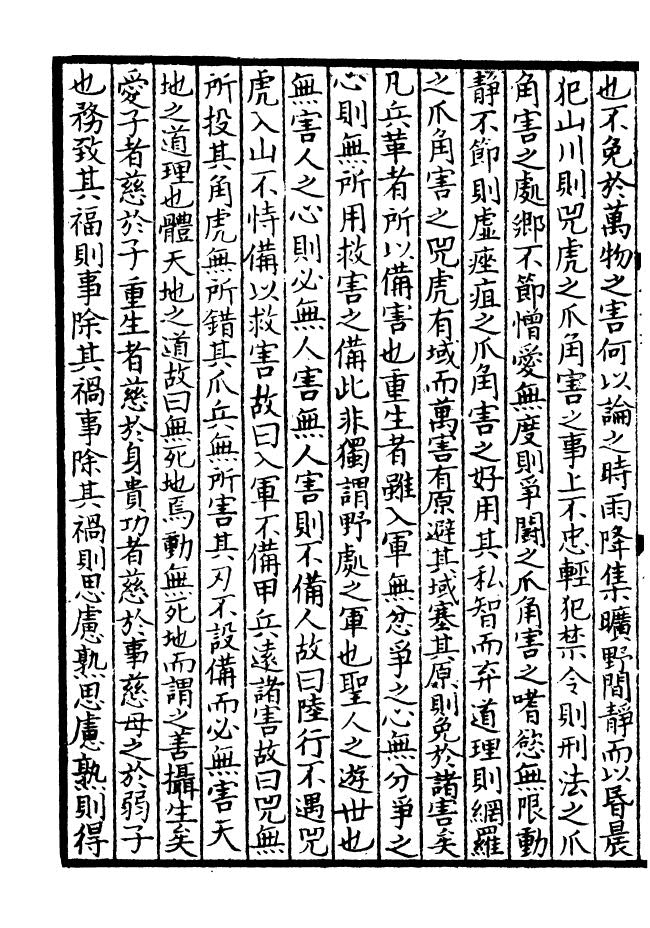 也不免於萬物之害何以論之時雨降集曠野閒靜而以昬晨
犯山川則兕虎之爪角害之事上不忠輕犯禁令則刑法之爪
角害之處鄉不節憎愛無度則爭鬬之爪角害之嗜慾無限動
靜不節則虛痤疽之爪角害之好用其私智而弃道理則網羅
之爪角害之兕虎有域而萬害有原避其域塞其原則免於諸害矣
凡兵革者所以備害也重生者雖入軍無忿爭之心無分爭之
心則無所用救害之備此非獨謂野處之軍也聖人之遊世也
無害人之心則必無人害無人害則不備人故曰陸行不遇兕
虎入山不恃備以救害故曰入軍不備甲兵遠諸害故曰兕無
所投其角虎無所錯其爪兵無所害其刃不設備而必無害天
地之道理也體天地之道故曰無死地焉動無死地而謂之善攝生矣
愛子者慈於子重生者慈於身貴功者慈於事慈母之於弱子
也務致其福則事除其禍事除其禍則思慮熟思慮熟則得